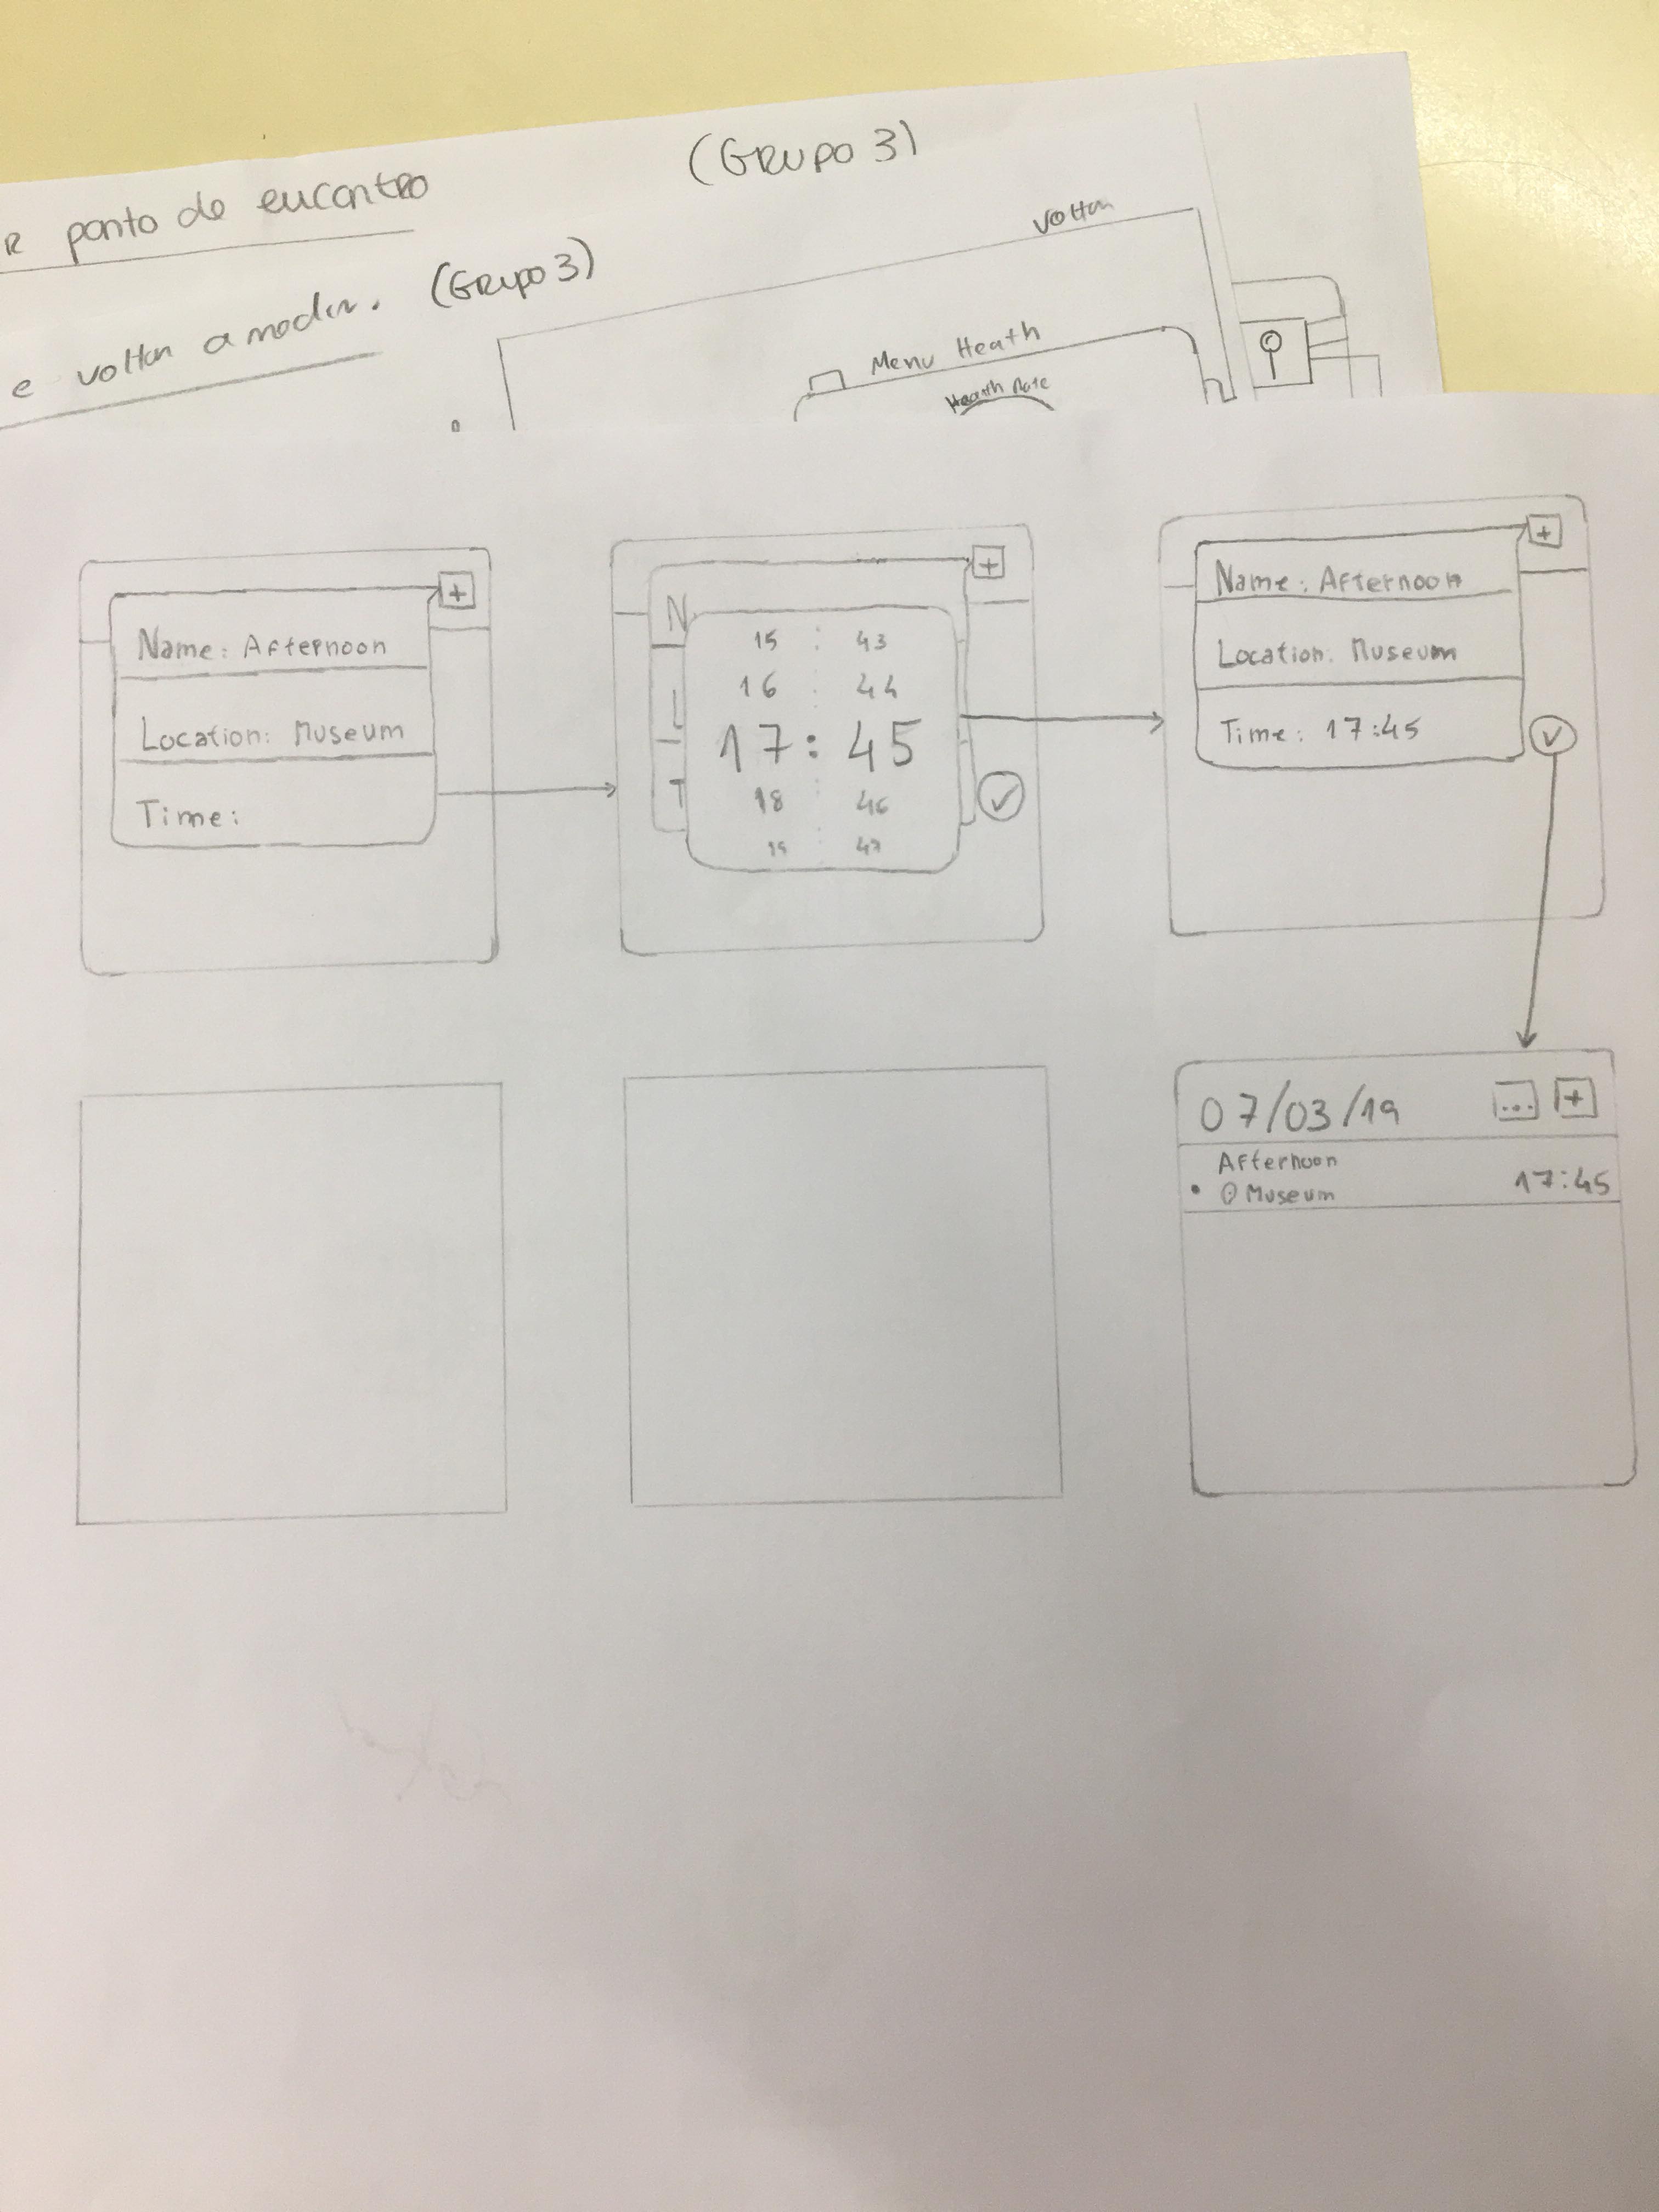 R ponto de encontro (GRUPO 3)
e voltar a nadar. (GRUPO 3)
voltar
Menu Heath
Hearth Rate
+
Name: Afternoon
Location: Museum
Time:
+
N
15 : 43
16 : 44
17 : 45
18 : 46
19 : 47
L
T
+
Name: Afternoon
Location: Museum
Time: 17:45
07/03/19 ... +
Afternoon
• Museum 17:45